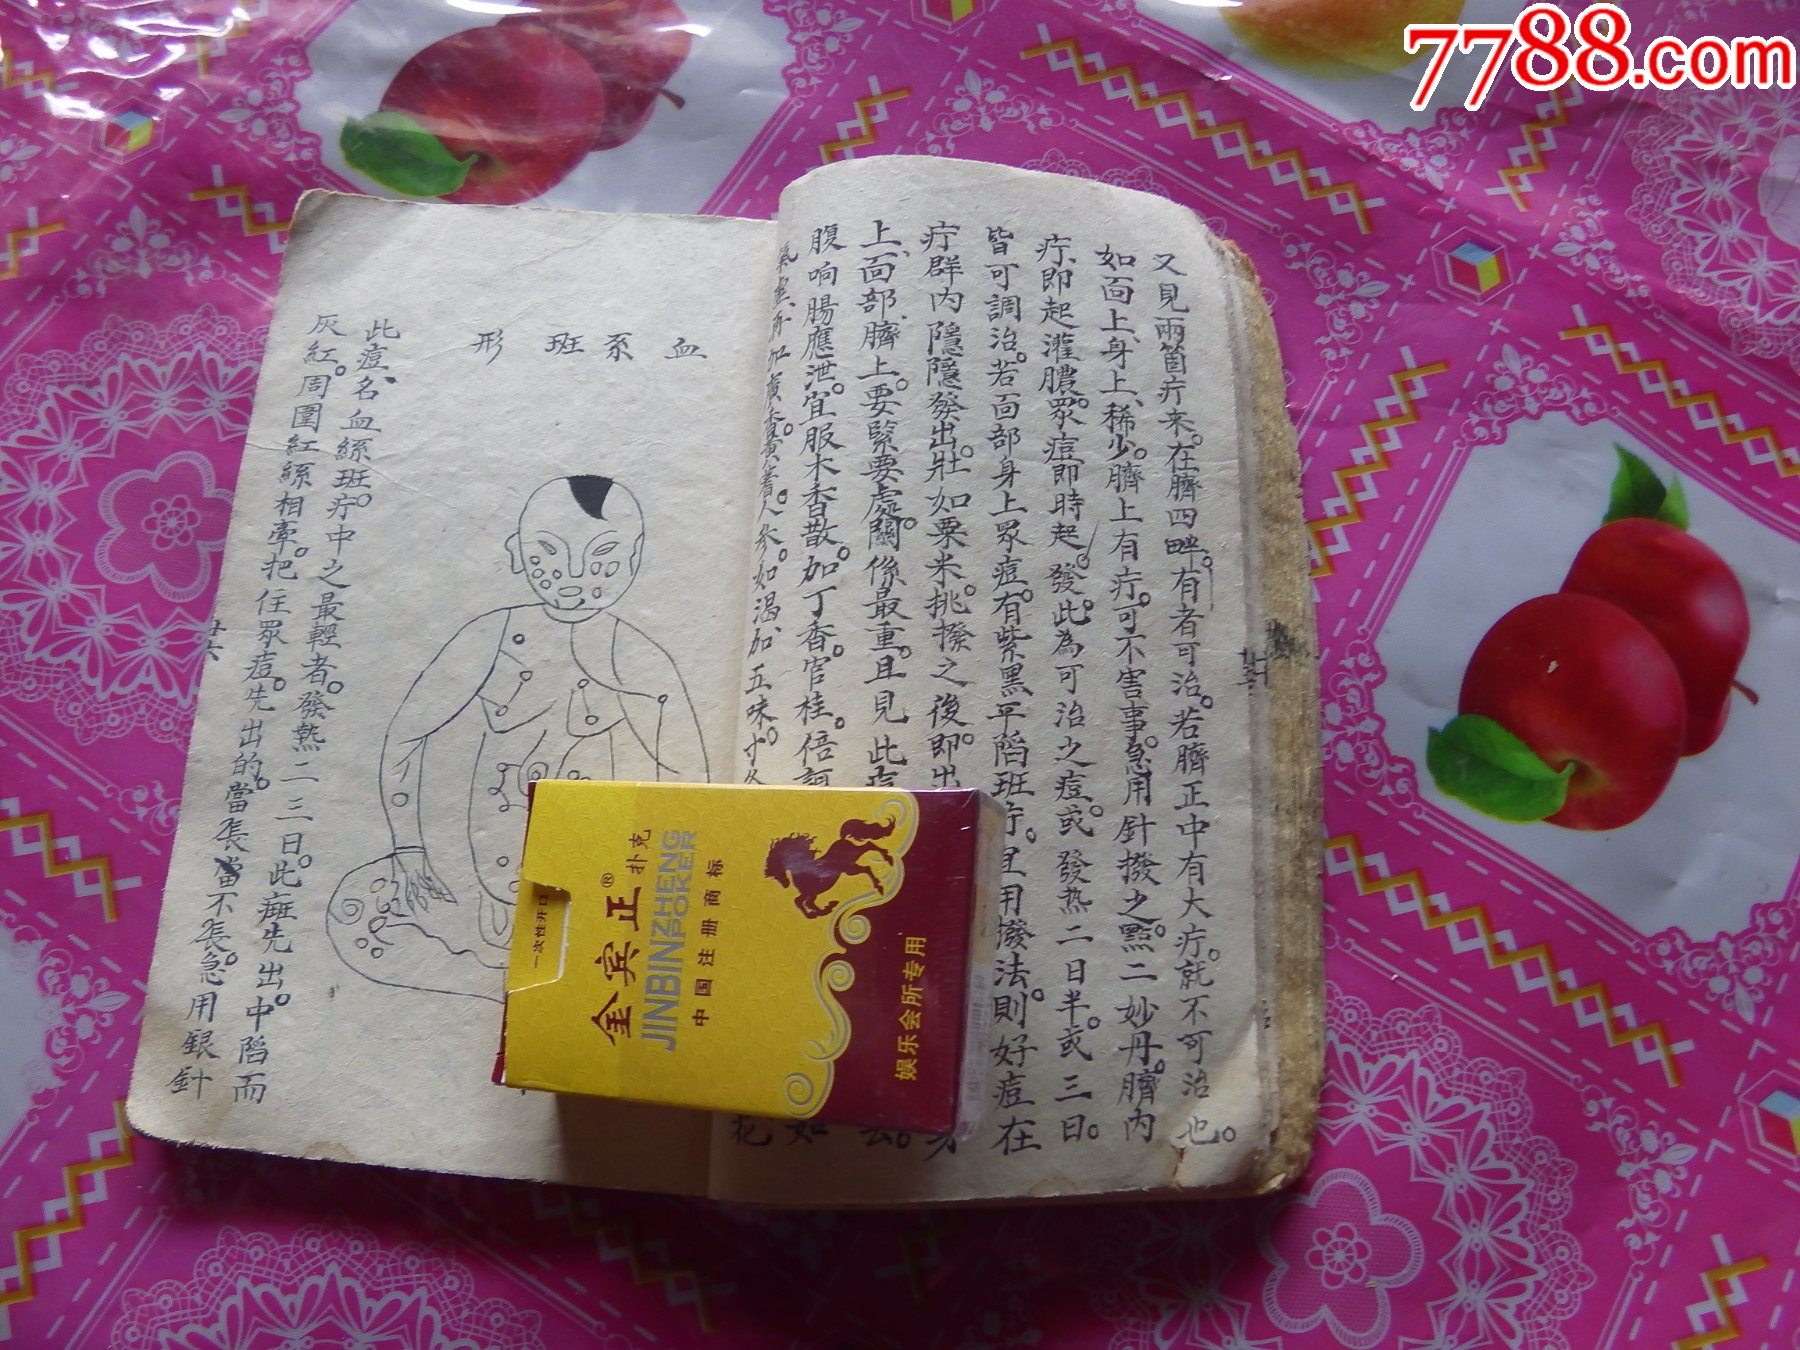 7788.com
又見兩箇疔来。在臍四畔。有者可治。若臍正中有大疔。就不可治也。
如面上、身上、稀少。臍上有疔。可不害事。急用針撥之。點二妙丹。臍內
疔、即起灌膿。眾痘即時起發。此為可治之痘。或發热二日半。或三日。
皆可調治。若面部身上眾痘。有紫黑平陷班疔。里用撥法。則好痘在
疔群內隱隱發出。壯如粟米。挑撥之後。即出
身
上、面部、臍上。要緊要處。關係最重。且見此痘
去。
腹响腸應泄。宜服木香散。加丁香。官桂。倍訶
如
人參。如渴加五味。
花
血系班形
此痘名、血絲班。疔中之最輕者。發热二三日。此症先出。中陷而
灰紅。周圍紅絲相牽。把住眾痘。先出的。當長當不長。急用銀針
廿六
金宾正®扑克
JINBINZHENG
POKER
中国注册商标
一次性开口
娱乐会所专用